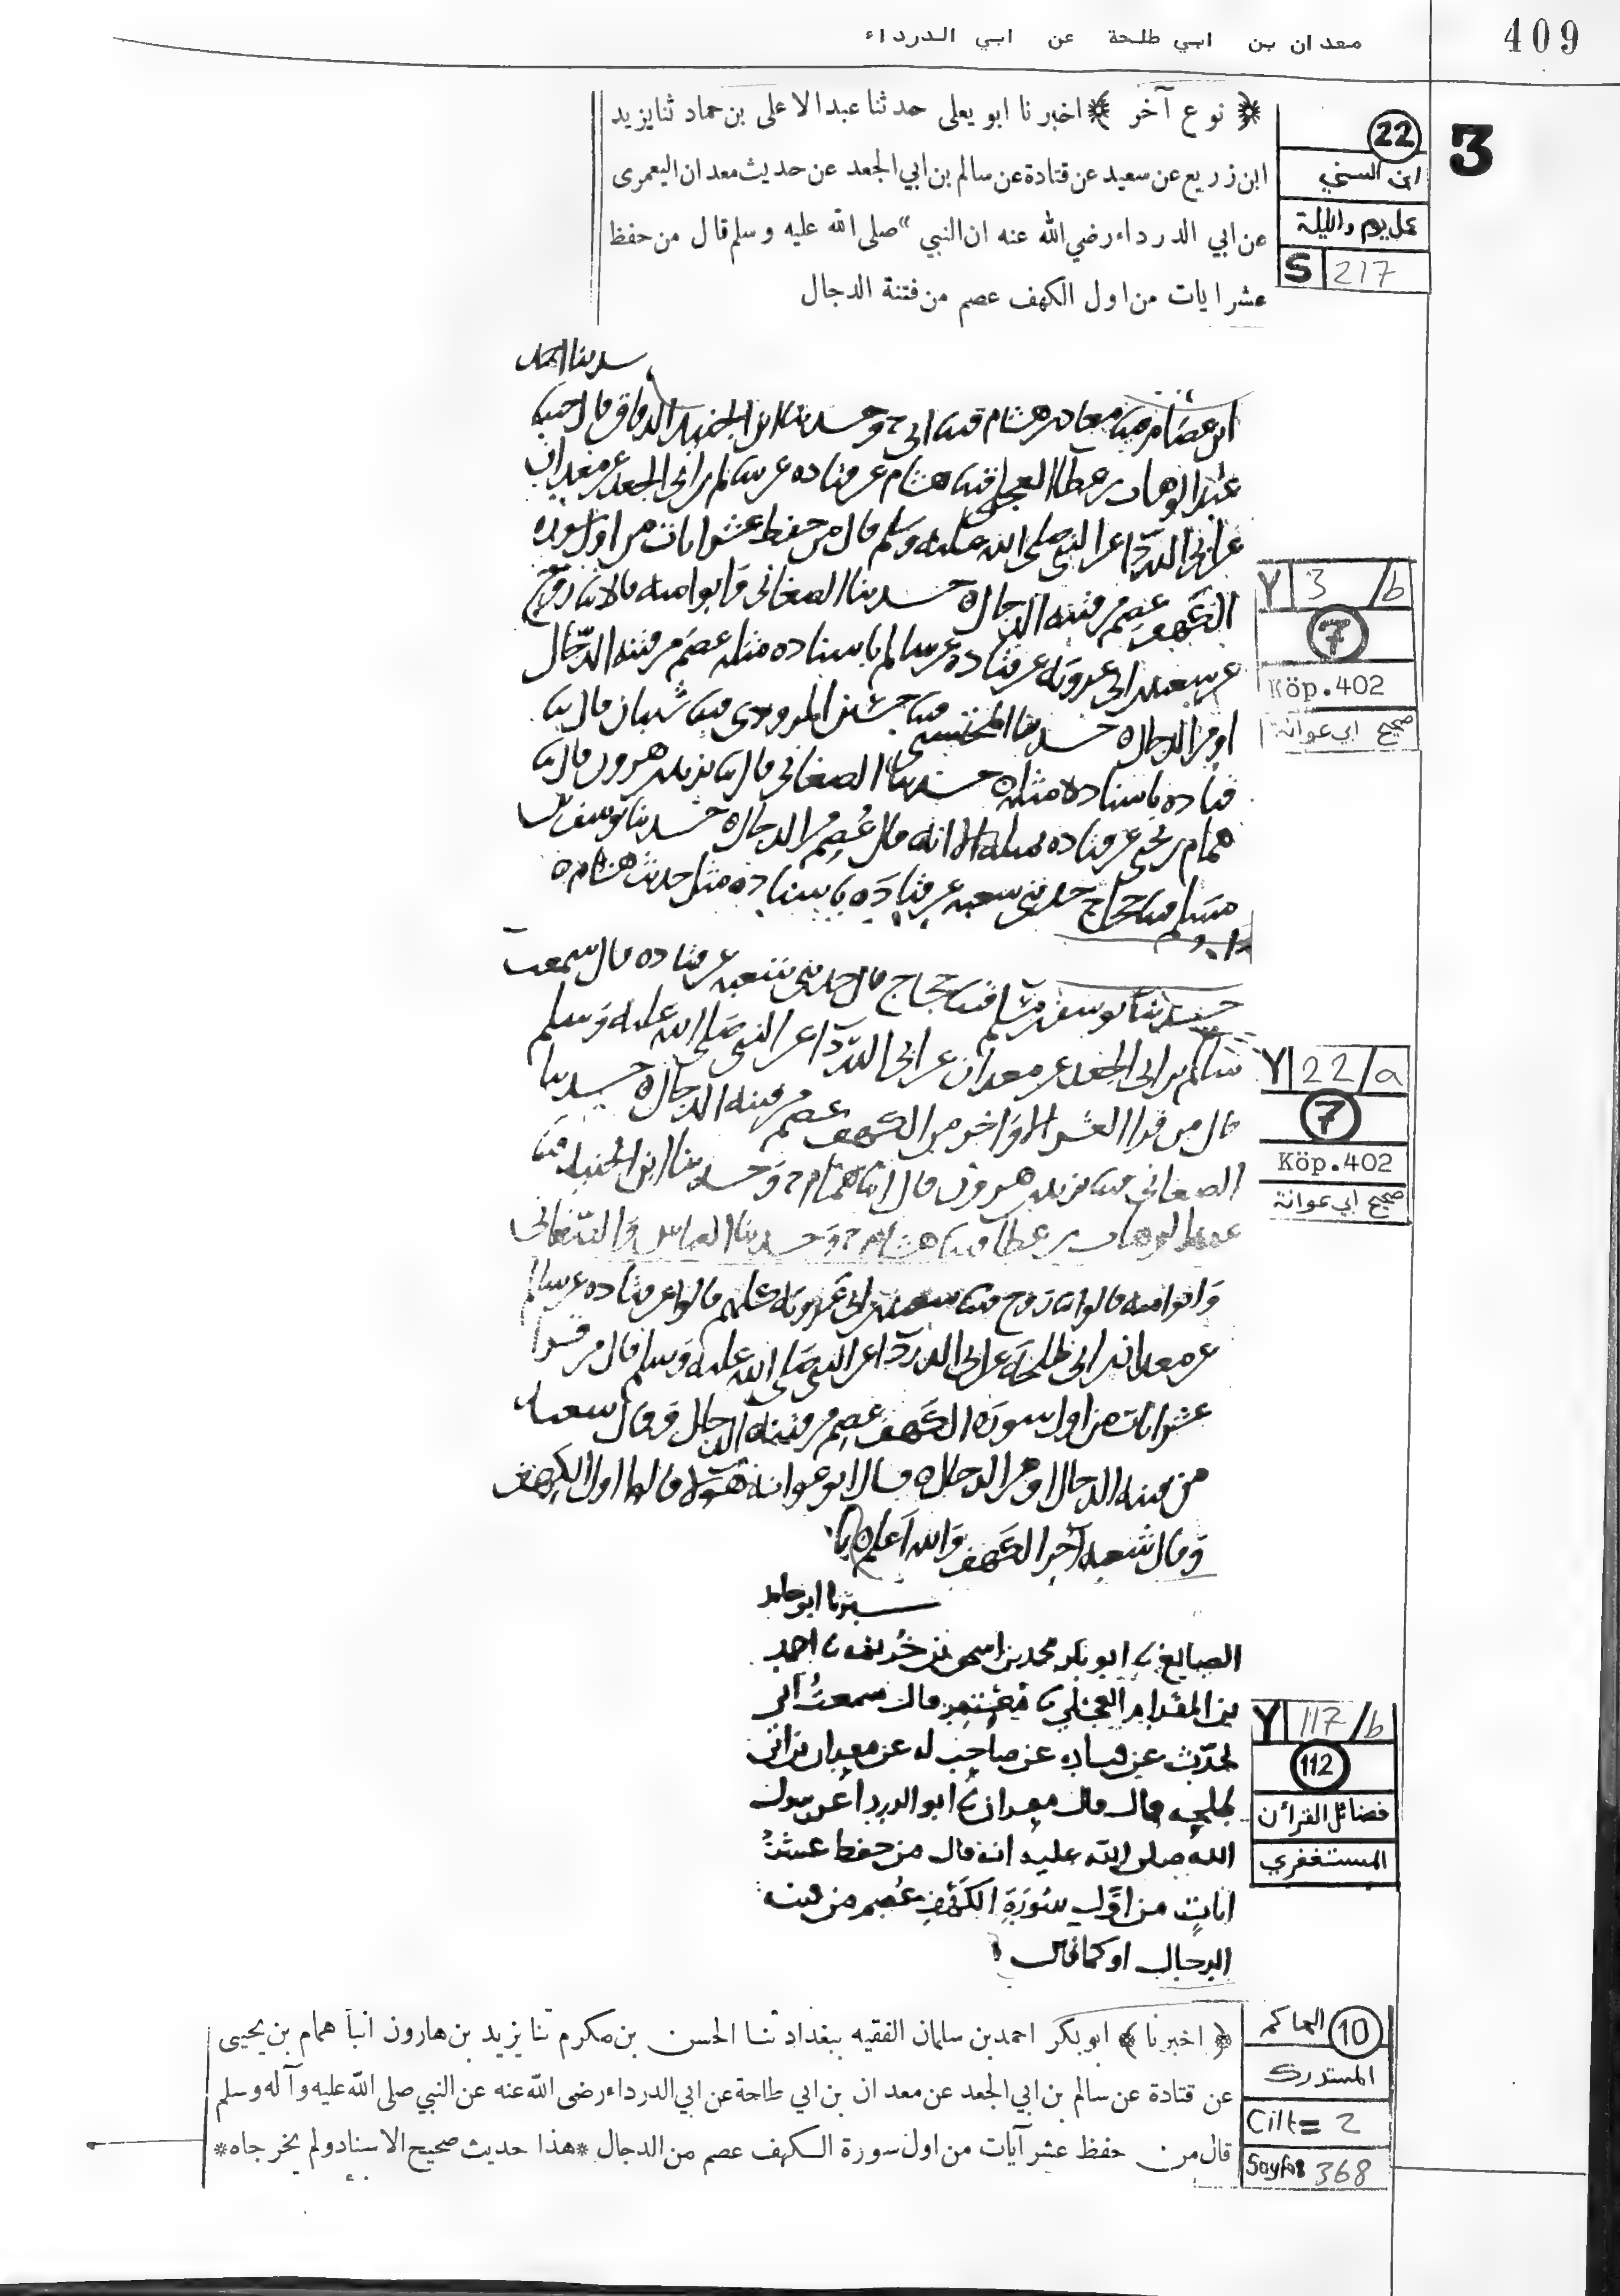 معدان بن ابي طلحة عن ابي الدرداء
409
3
22
ابن السني
عمل يوم والليلة
S 217
﴿ نوع آخر ﴾ اخبرنا ابو يعلى حدثنا عبد الاعلى بن حماد ثنا يزيد
ابن زريع عن سعيد عن قتادة عن سالم بن ابي الجعد عن حديث معدان اليعمرى
عن ابي الدرداء رضي الله عنه ان النبي صلى الله عليه وسلم قال من حفظ
عشر ايات من اول الكهف عصم من فتنة الدجال
Y 3 /b
7
Köp.402
صحيح ابي عوانة
عبد الوهاب بن عطا العجلي هشام عن قتاده عن سالم بن ابي الجعد عن معدان
عن ابي الدردا عن النبي صلى الله عليه وسلم قال من حفظ عشر ايات من اول سوره
الكهف عصم من فتنه الدجال حدثنا الصغاني وابو اميه قالا ثنا روح
عن سعيد بن ابي عروبه عن قتاده عن سالم باسناده مثله عصم من فتنه الدجال
او من الدجال حدثنا شيبان قال ثنا
قتاده باسناده مثله حدثنا الصغاني قال ثنا يزيد بن هرون قال ثنا
همام بن يحيى عن قتاده بمثله الا انه قال عصم من الدجال حدثنا يوسف بن
مسلم ثنا حجاج حدثني شعبه عن قتاده باسناده مثل حديث هشام
Y 22/a
7
Köp.402
صحيح ابي عوانة
حدثنا يوسف بن مسلم ثنا حجاج قال حدثني شعبه عن قتاده قال سمعت
سالم بن ابي الجعد عن معدان عن ابي الدردا عن النبي صلى الله عليه وسلم
قال من قرا العشر الاواخر من الكهف عصم من فتنه الدجال حدثنا
الصغاني ثنا يزيد بن هرون قال همام ح وحدثنا ابن الجنيد ثنا
عبد الوهاب بن عطا ثنا هشام ح وحدثنا والصغاني
وابو اميه قالوا ثنا روح ثنا سعيد بن ابي عروبه كلهم قالوا عن قتاده عن سالم
عن معدان بن ابي طلحه عن ابي الدردا عن النبي صلى الله عليه وسلم قال من قرا
عشر ايات من اول سوره الكهف عصم من فتنه الدجال وقال سعيد
من فتنه الدجال او من الدجال قال ابو عوانه قالوا اول الكهف
وقال شعبه آخر الكهف والله اعلم
Y 117/b
112
فضائل القرأن
المستغفري
ابو حامد
الصايغ ابو بكر محمد بن اسحق بن خزيمه احمد
بن المقدام العجلي معتمر قال سمعت ابي
يحدث عن قتاده عن صاحب له عن معدان بن ابي
طلحه قال قال معدان ابو الدردا عن رسول
الله صلى الله عليه انه قال من حفظ عشر
ايات من اول سورة الكهف عصم من فتنه
الدجال او كما قال
10
الحاكم
المستدرك
Cilt= 2
Sayfa 368
﴿ اخبرنا ﴾ ابو بكر احمد بن سلمان الفقيه ببغداد ثنا الحسن بن مكرم ثنا يزيد بن هارون انبأ همام بن يحيى
عن قتادة عن سالم بن ابي الجعد عن معدان بن ابي طلحة عن ابي الدرداء رضى الله عنه عن النبي صلى الله عليه وآله وسلم
قال من حفظ عشر آيات من اول سورة الكهف عصم من الدجال *هذا حديث صحيح الاسناد ولم يخرجاه*